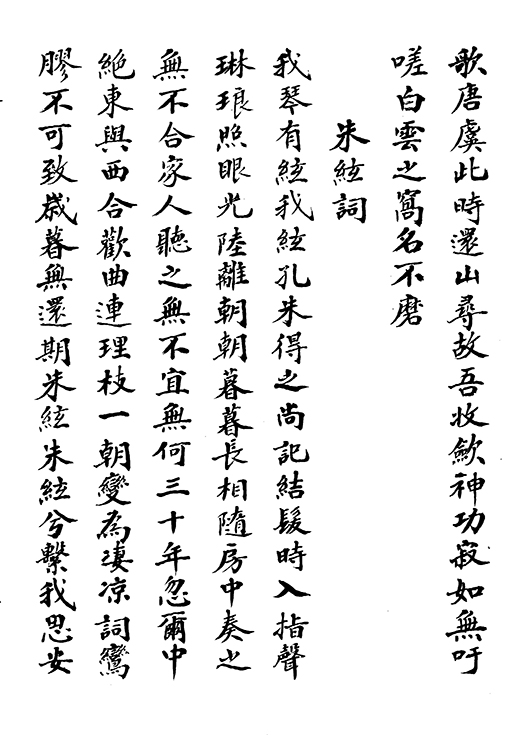 歌唐虞此時還山尋故吾收歛神功寂如無吁
嗟白雲之窩名不磨
朱絃詞
我琴有絃我絃孔朱得之尚記結髮時入指聲
琳琅照眼光陸離朝朝暮暮長相隨房中奏之
無不合家人聽之無不宜無何三十年忽爾中
絶東與西合歡曲連理枝一朝變為凄凉詞鸞
膠不可致歳暮無還期朱絃朱絃兮繫我思安